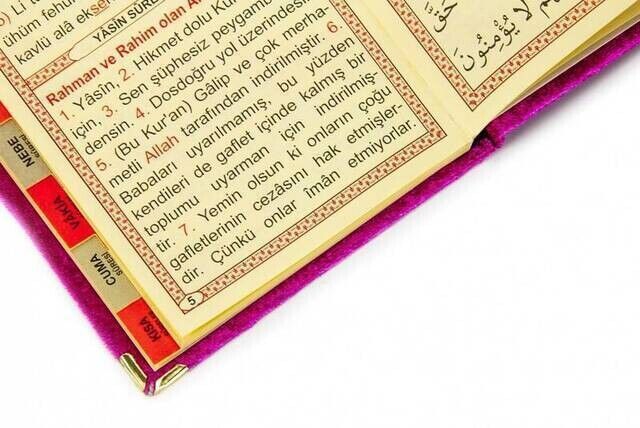 ) Li t
ühüm fehüm
kavlü alâ ekser
YÂSİN SÛR
Rahman ve Rahim olan A
1. Yâsîn, 2. Hikmet dolu Kur
için, 3. Sen şüphesiz peygam
densin. 4. Dosdoğru yol üzerindesi
5. (Bu Kur'an) Gâlip ve çok merha-
metli Allah tarafından indirilmiştir. 6.
Babaları uyarılmamış, bu yüzden
kendileri de gaflet içinde kalmış bir
toplumu uyarman için indirilmiş-
tir. 7. Yemin olsun ki onların çoğu
gafletlerinin cezasını hak etmişler-
dir. Çünkü onlar îmân etmiyorlar.
5
NEBE
VÂKIA
CUMA
SÛRESİ
KISA
حَقَّ
لَا يُؤْمِنُونَ